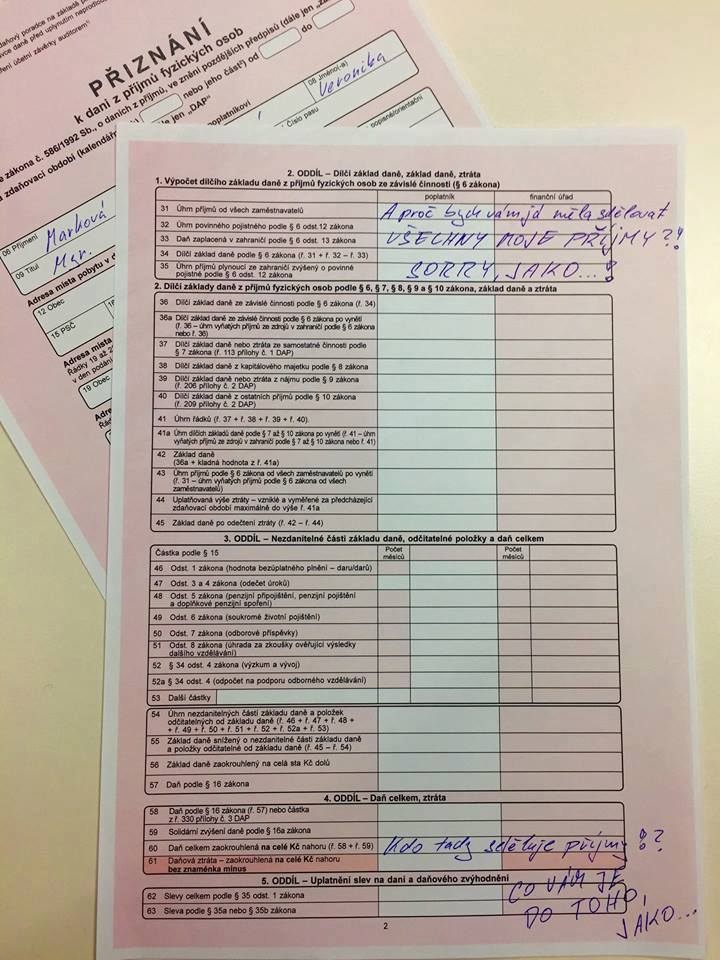 daňový poradce na základě
PŘIZNÁNÍ
k dani z příjmů fyzických osob
zákona č. 586/1992 Sb., o daních z příjmů, ve znění pozdějších předpisů (dále jen
zdaňovací období (kalendářní
nebo jeho část) od
do
dále jen „DAP“
06 Příjmení
Marková
09 Titul
Mgr.
08 Jméno(-a)
Veronika
Číslo pasu
Adresa místa pobytu v
12 Obec
15 PSČ
Adresa místa
Řádky 19 až
v den podání
19 Obec
2. ODDÍL – Dílčí základ daně, základ daně, ztráta
1. Výpočet dílčího základu daně z příjmů fyzických osob ze závislé činnosti (§ 6 zákona)
poplatník finanční úřad
31 Úhrn příjmů od všech zaměstnavatelů
A proč bych vám jd měla sdělovat
32 Úhrn povinného pojistného podle § 6 odst.12 zákona
33 Daň zaplacená v zahraničí podle § 6 odst. 13 zákona
VŠECHNY MOJE PŘÍJMY?!
34 Dílčí základ daně podle § 6 zákona (ř. 31 + ř. 32 – ř. 33)
35 Úhrn příjmů plynoucí ze zahraničí zvýšený o povinné
pojistné podle § 6 odst. 12 zákona
SORRY, JAKO...!
2. Dílčí základy daně z příjmů fyzických osob podle § 6, § 7, § 8, § 9 a § 10 zákona, základ daně a ztráta
36 Dílčí základ daně ze závislé činnosti podle § 6 zákona (ř. 34)
36a Dílčí základ daně ze závislé činnosti podle § 6 zákona po vynětí
(ř. 36 – úhrn vyňatých příjmů ze zdrojů v zahraničí podle § 6 zákona
nebo ř. 36)
37 Dílčí základ daně nebo ztráta ze samostatné činnosti podle
§ 7 zákona (ř. 113 přílohy č. 1 DAP)
38 Dílčí základ daně z kapitálového majetku podle § 8 zákona
39 Dílčí základ daně nebo ztráta z nájmu podle § 9 zákona
(ř. 206 přílohy č. 2 DAP)
40 Dílčí základ daně z ostatních příjmů podle § 10 zákona
(ř. 209 přílohy č. 2 DAP)
41 Úhrn řádků (ř. 37 + ř. 38 + ř. 39 + ř. 40)
41a Úhrn dílčích základů daně podle § 7 až § 10 zákona po vynětí (ř. 41 – úhrn
vyňatých příjmů ze zdrojů v zahraničí podle § 7 až § 10 zákona nebo ř. 41)
42 Základ daně
(36a + kladná hodnota z ř. 41a)
43 Úhrn příjmů podle § 6 zákona od všech zaměstnavatelů po vynětí
(ř. 31 – úhrn vyňatých příjmů podle § 6 zákona od všech
zaměstnavatelů)
44 Uplatňovaná výše ztráty – vzniklé a vyměřené za předcházející
zdaňovací období maximálně do výše ř. 41a
45 Základ daně po odečtení ztráty (ř. 42 – ř. 44)
3. ODDÍL – Nezdanitelné části základu daně, odčitatelné položky a daň celkem
Částka podle § 15
Počet
měsíců
Počet
měsíců
46 Odst. 1 zákona (hodnota bezúplatného plnění – daru/darů)
47 Odst. 3 a 4 zákona (odečet úroků)
48 Odst. 5 zákona (penzijní připojištění, penzijní pojištění
a doplňkové penzijní spoření)
49 Odst. 6 zákona (soukromé životní pojištění)
50 Odst. 7 zákona (odborové příspěvky)
51 Odst. 8 zákona (úhrada za zkoušky ověřující výsledky
dalšího vzdělávání)
52 § 34 odst. 4 zákona (výzkum a vývoj)
52a § 34 odst. 4 zákona (odpočet na podporu odborného vzdělávání)
53 Další částky
54 Úhrn nezdanitelných částí základu daně a položek
odčitatelných od základu daně (ř. 46 + ř. 47 + ř. 48 +
+ ř. 49 + ř. 50 + ř. 51 + ř. 52 + ř. 52a + ř. 53)
55 Základ daně snížený o nezdanitelné části základu daně
a položky odčitatelné od základu daně (ř. 45 – ř. 54)
56 Základ daně zaokrouhlený na celá sta Kč dolů
57 Daň podle § 16 zákona
4. ODDÍL – Daň celkem, ztráta
58 Daň podle § 16 zákona (ř. 57) nebo částka
z ř. 330 přílohy č. 3 DAP
59 Solidární zvýšení daně podle § 16a zákona
60 Daň celkem zaokrouhlená na celé Kč nahoru (ř. 58 + ř. 59)
Kdo tady sděluje příjmy!?
61 Daňová ztráta – zaokrouhlená na celé Kč nahoru
bez znaménka minus
5. ODDÍL – Uplatnění slev na dani a daňového zvýhodnění
62 Slevy celkem podle § 35 odst. 1 zákona
63 Sleva podle § 35a nebo § 35b zákona
CO VÁM JE
DO TOHO,
JAKO...
2